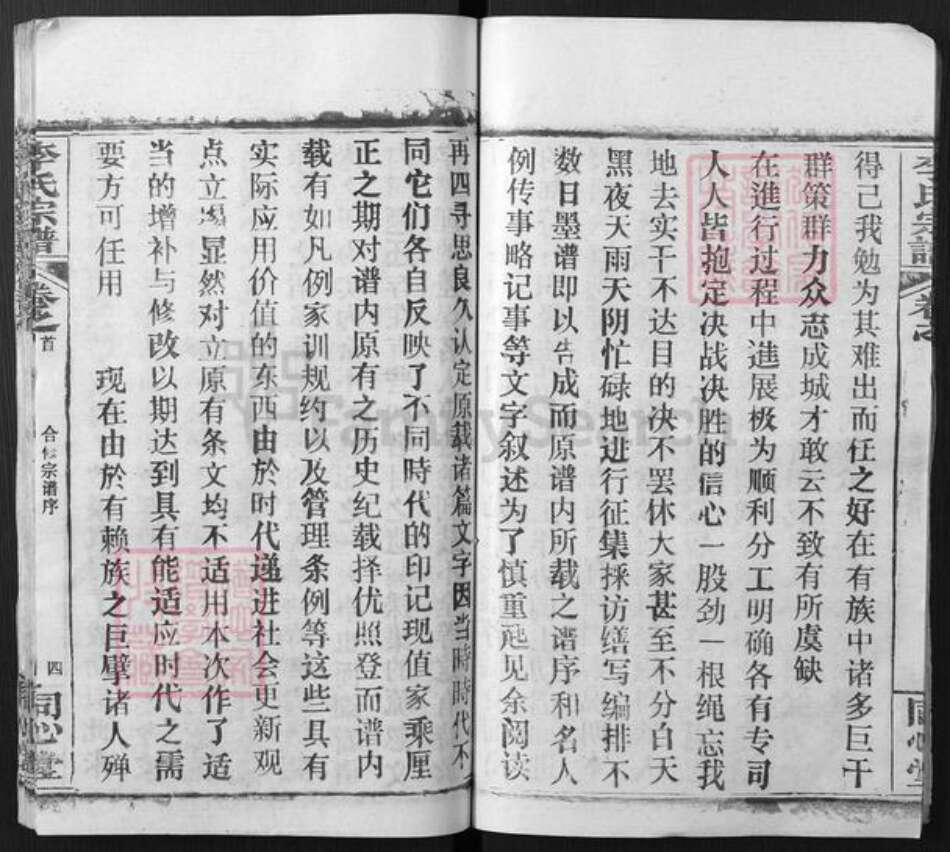 得己我勉为其难出而任之好在有族中诸多巨干
群策群力众志成城才敢云不致有所虞缺
在進行过程中進展极为顺利分工明确各有专司
人人皆抱定决战决胜的信心一股劲一根绳忘我
地去实干不达目的决不罢休大家甚至不分白天
黑夜天雨天阴忙碌地进行征集採访缮写编排不
数日墨谱即以告成而原谱内所载之谱序和名人
例传事略记事等文字叙述为了慎重起见余阅读
再四寻思良久认定原载诸篇文字因当時時代不
同它们各自反映了不同時代的印记现值家乘厘
正之期对谱内原有之历史纪载择优照登而谱内
载有如凡例家训规约以及管理条例等这些具有
实际应用价值的东西由於时代递进社会更新观
点立場显然对立原有条文均不适用本次作了适
当的增补与修改以期达到具有能适应时代之需
要方可任用　现在由於有赖族之巨擘诸人殚
李氏宗谱 卷之首 合修宗谱序 四 同心堂